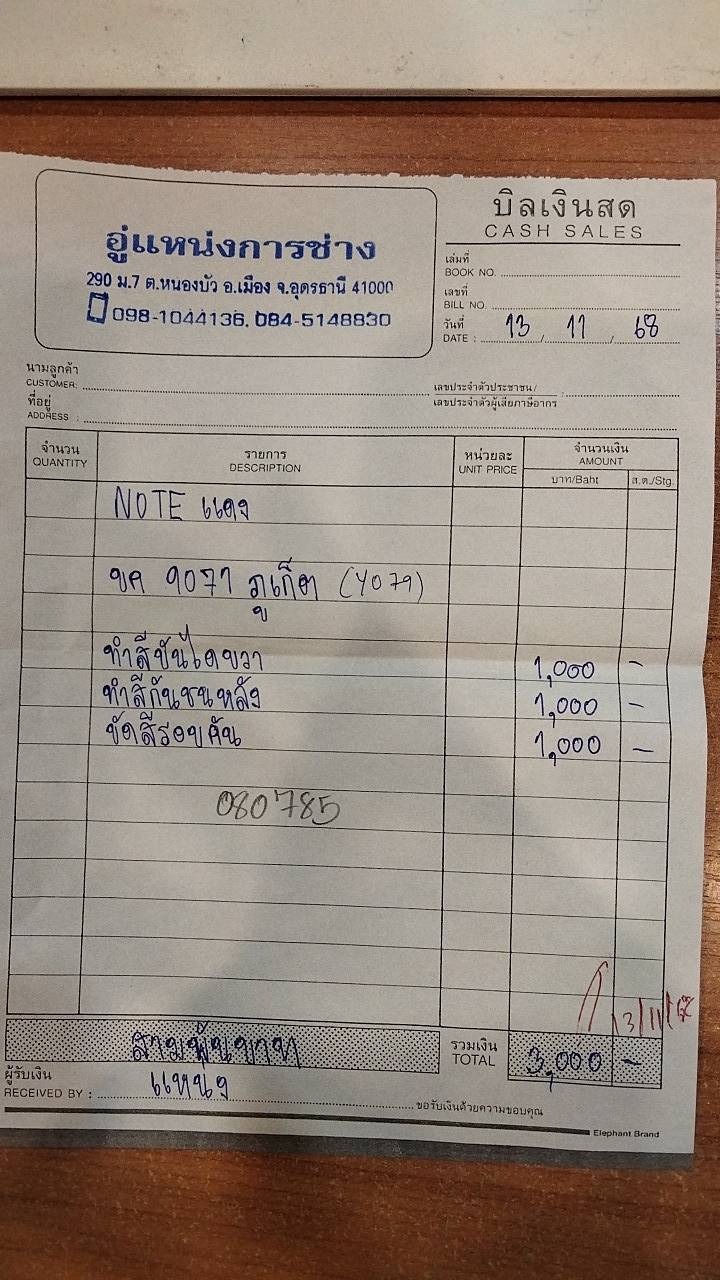 อู่แหน่งการช่าง
290 ม.7 ต.หนองบัว อ.เมือง จ.อุดรธานี 41000
098-1044136, 084-5148830
บิลเงินสด
CASH SALES
เล่มที่
BOOK NO.
เลขที่
BILL NO.
วันที่
DATE : 13 / 11 / 68
นามลูกค้า
CUSTOMER:
เลขประจำตัวประชาชน/
เลขประจำตัวผู้เสียภาษีอากร :
ที่อยู่
ADDRESS :
จำนวน รายการ หน่วยละ จำนวนเงิน
QUANTITY DESCRIPTION UNIT PRICE AMOUNT
บาท/Baht ส.ต./Stg.
NOTE แดง
ขค 9071 ภูเก็ต (Y079)
ทำสีบันไดขวา 1,000 -
ทำสีกันชนหลัง 1,000 -
ขัดสีรอบคัน 1,000 -
080785
13/11/68
สามพันบาท รวมเงิน
TOTAL 3,000 -
ผู้รับเงิน
RECEIVED BY : แหน่ง
ขอรับเงินด้วยความขอบคุณ
Elephant Brand